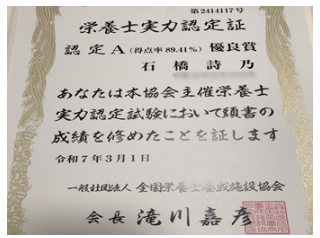 第2414117号
栄養士実力認定証
認定A(得点率89.41%)優良賞
石橋詩乃
あなたは本協会主催栄養士
実力認定試験において頭書の
成績を修めたことを証します
令和7年3月1日
一般社団法人 全国栄養士養成施設協会
会長 滝川嘉彦